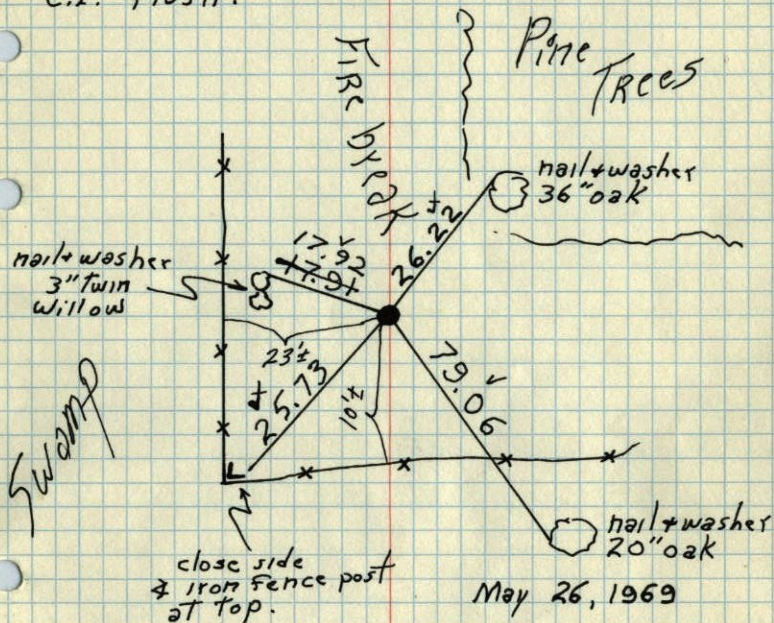 Pine
Trees
Fire break
nail + washer
36" oak
26.22 ±
17.92 ✓
17.91
nail + washer
3" twin
willow
23'±
25.73 ±
10'±
79.06 ✓
Swamp
nail + washer
20" oak
close side
∡ iron fence post
at top.
May 26, 1969